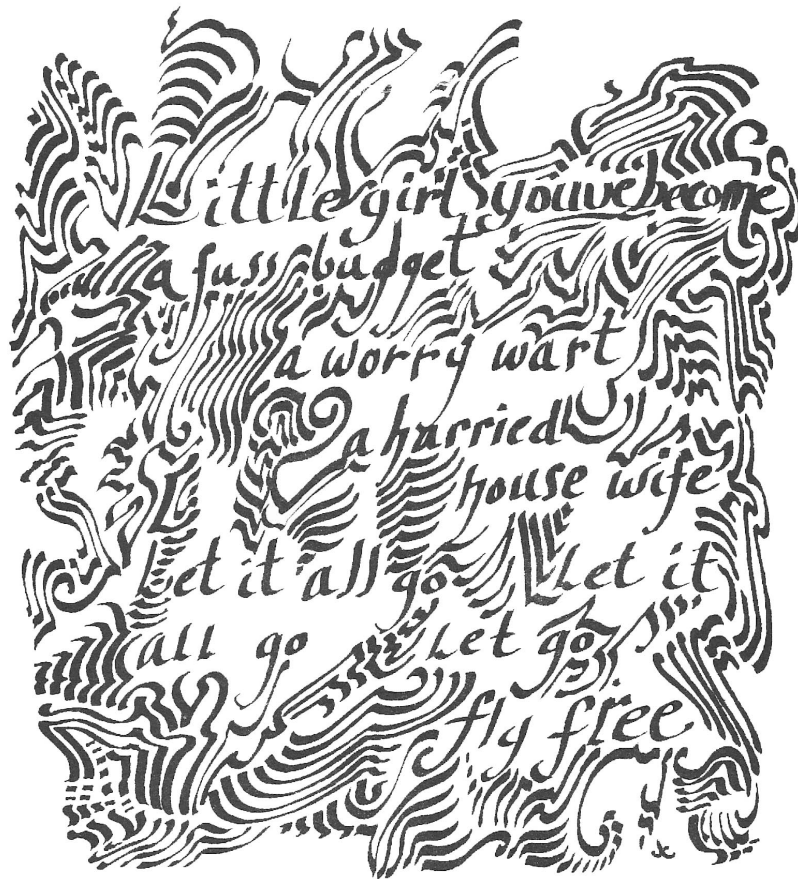 Little girl youve become
a fuss budget
a worry wart
a harried
house wife
Let it all go Let it
all go Let go
fly free